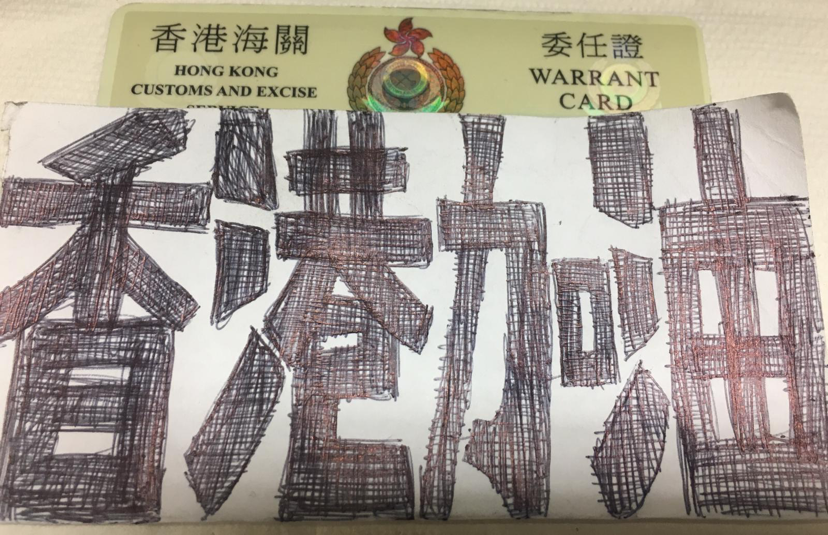 香港海關
HONG KONG
CUSTOMS AND EXCISE
SERVICE
委任證
WARRANT
CARD
香港加油